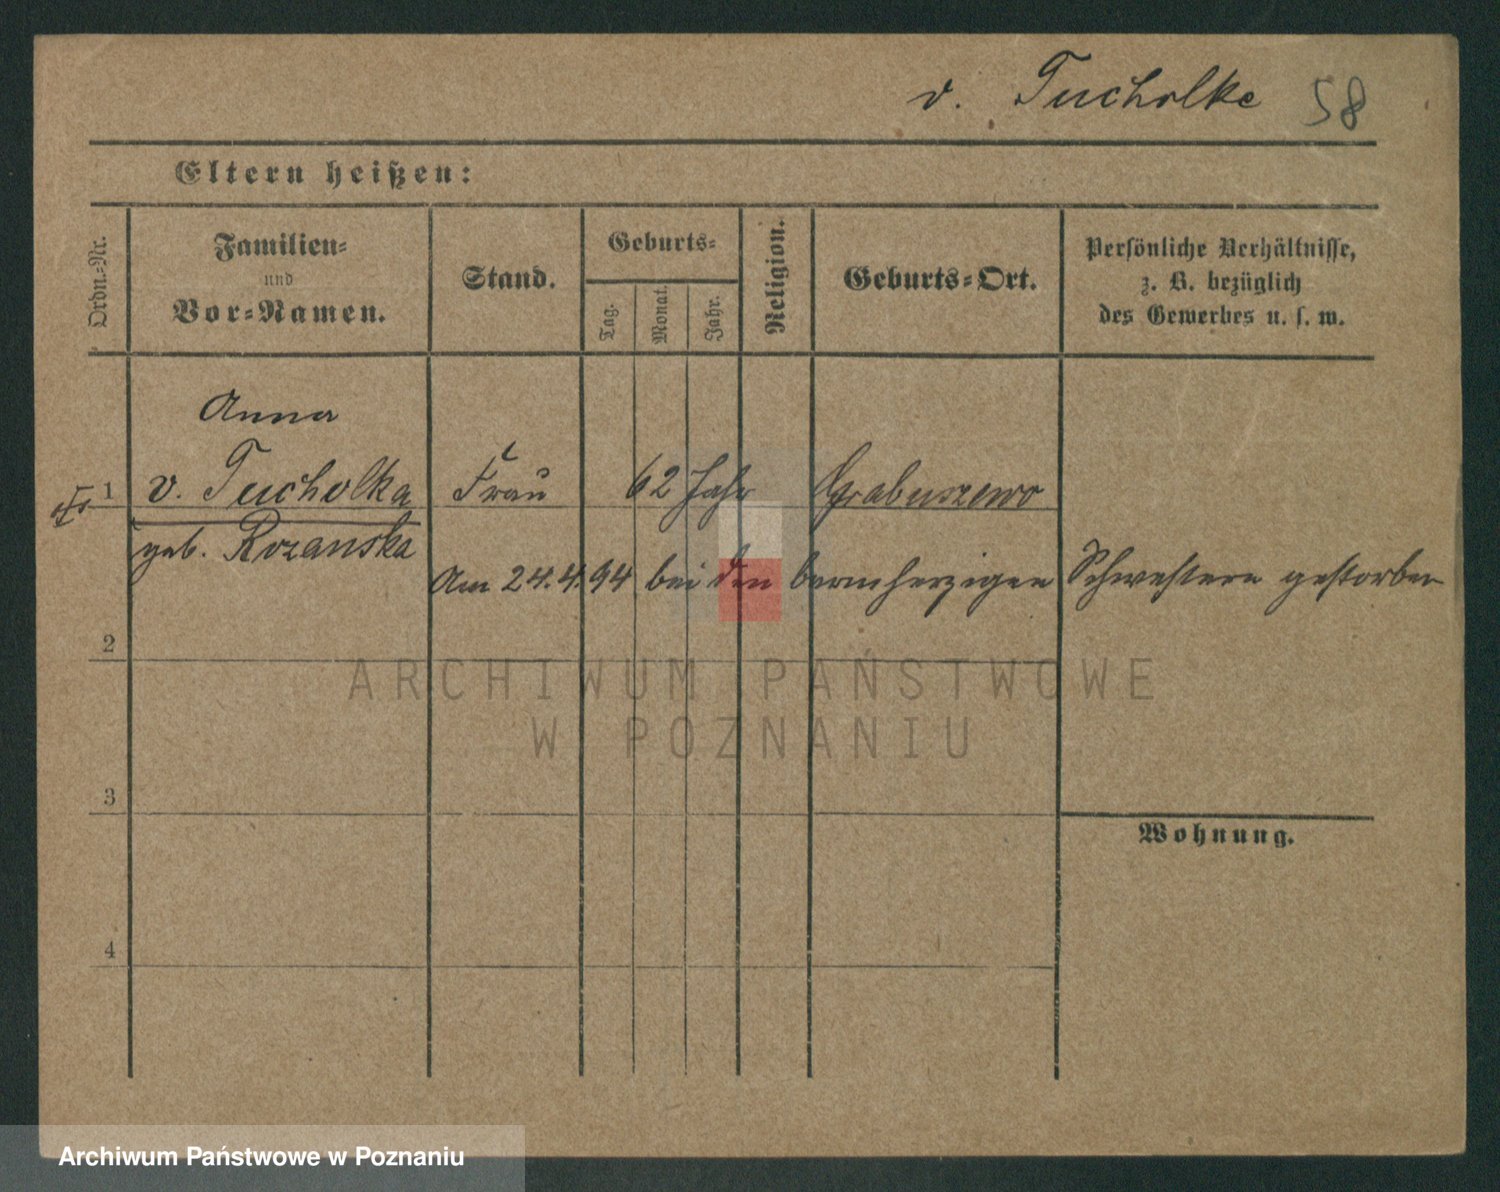 v. Tucholke 58
Eltern heißen:
Ordn.-Nr.
Familien-
und
Vor-Namen.
Stand.
Geburts-
Tag.
Monat.
Jahr.
Religion.
Geburts-Ort.
Persönliche Verhältnisse,
z. B. bezüglich
des Gewerbes u. s. w.
Anna
1 v. Tucholka Frau 62 Jahr Grabuszewo
geb. Rozanska
Am 24.4.94 bei den barmherzigen Schwestern gestorben
2
ARCHIWUM PAŃSTWOWE
W POZNANIU
3
Wohnung.
4
Archiwum Państwowe w Poznaniu